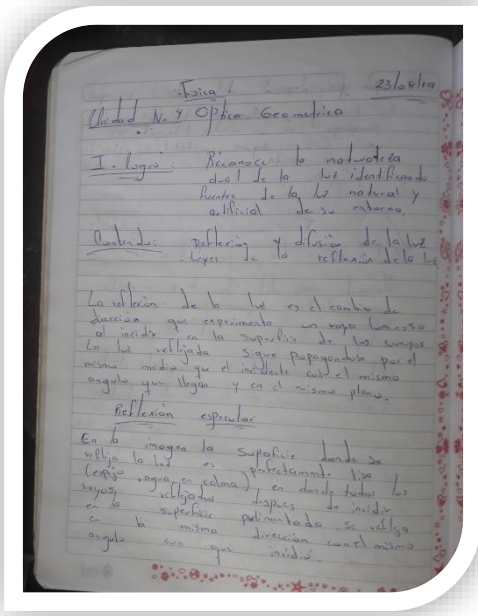 Física 23/04/19
Unidad N. 4 Optica Geometrica
I. Logro: Reconoce la naturaleza
dual de la luz identificando
fuentes de la luz natural y
artificial de su entorno.
Contenido: Reflexión y difusión de la luz
Leyes de la reflexión de la luz
La reflexión de la luz es el cambio de
dirección que experimenta un rayo luminoso
al incidir en la superficie de los cuerpos.
La luz reflejada sigue propagandose por el
mismo medio que el incidente con el mismo
angulo que llegan y en el mismo plano.
Reflexión especular
En la imagen la superficie donde se
refleja la luz es perfectamente lisa
(espejo, agua en calma) en donde todos los
rayos reflejados despues de incidir
en la superficie pulimentada se refleja
en la misma dirección con el mismo
angulo con que incidió.